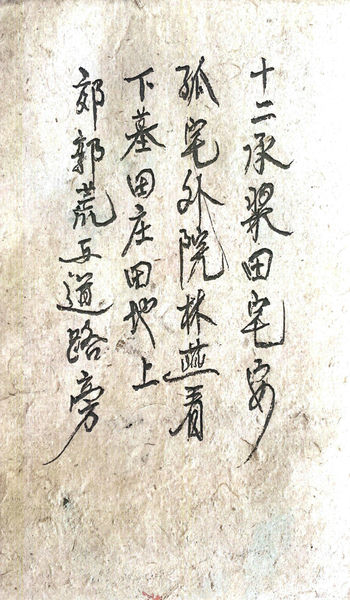 十二承田宅安
孤宅外院林看
下墓田庄田地上
郊郭荒丘道路旁